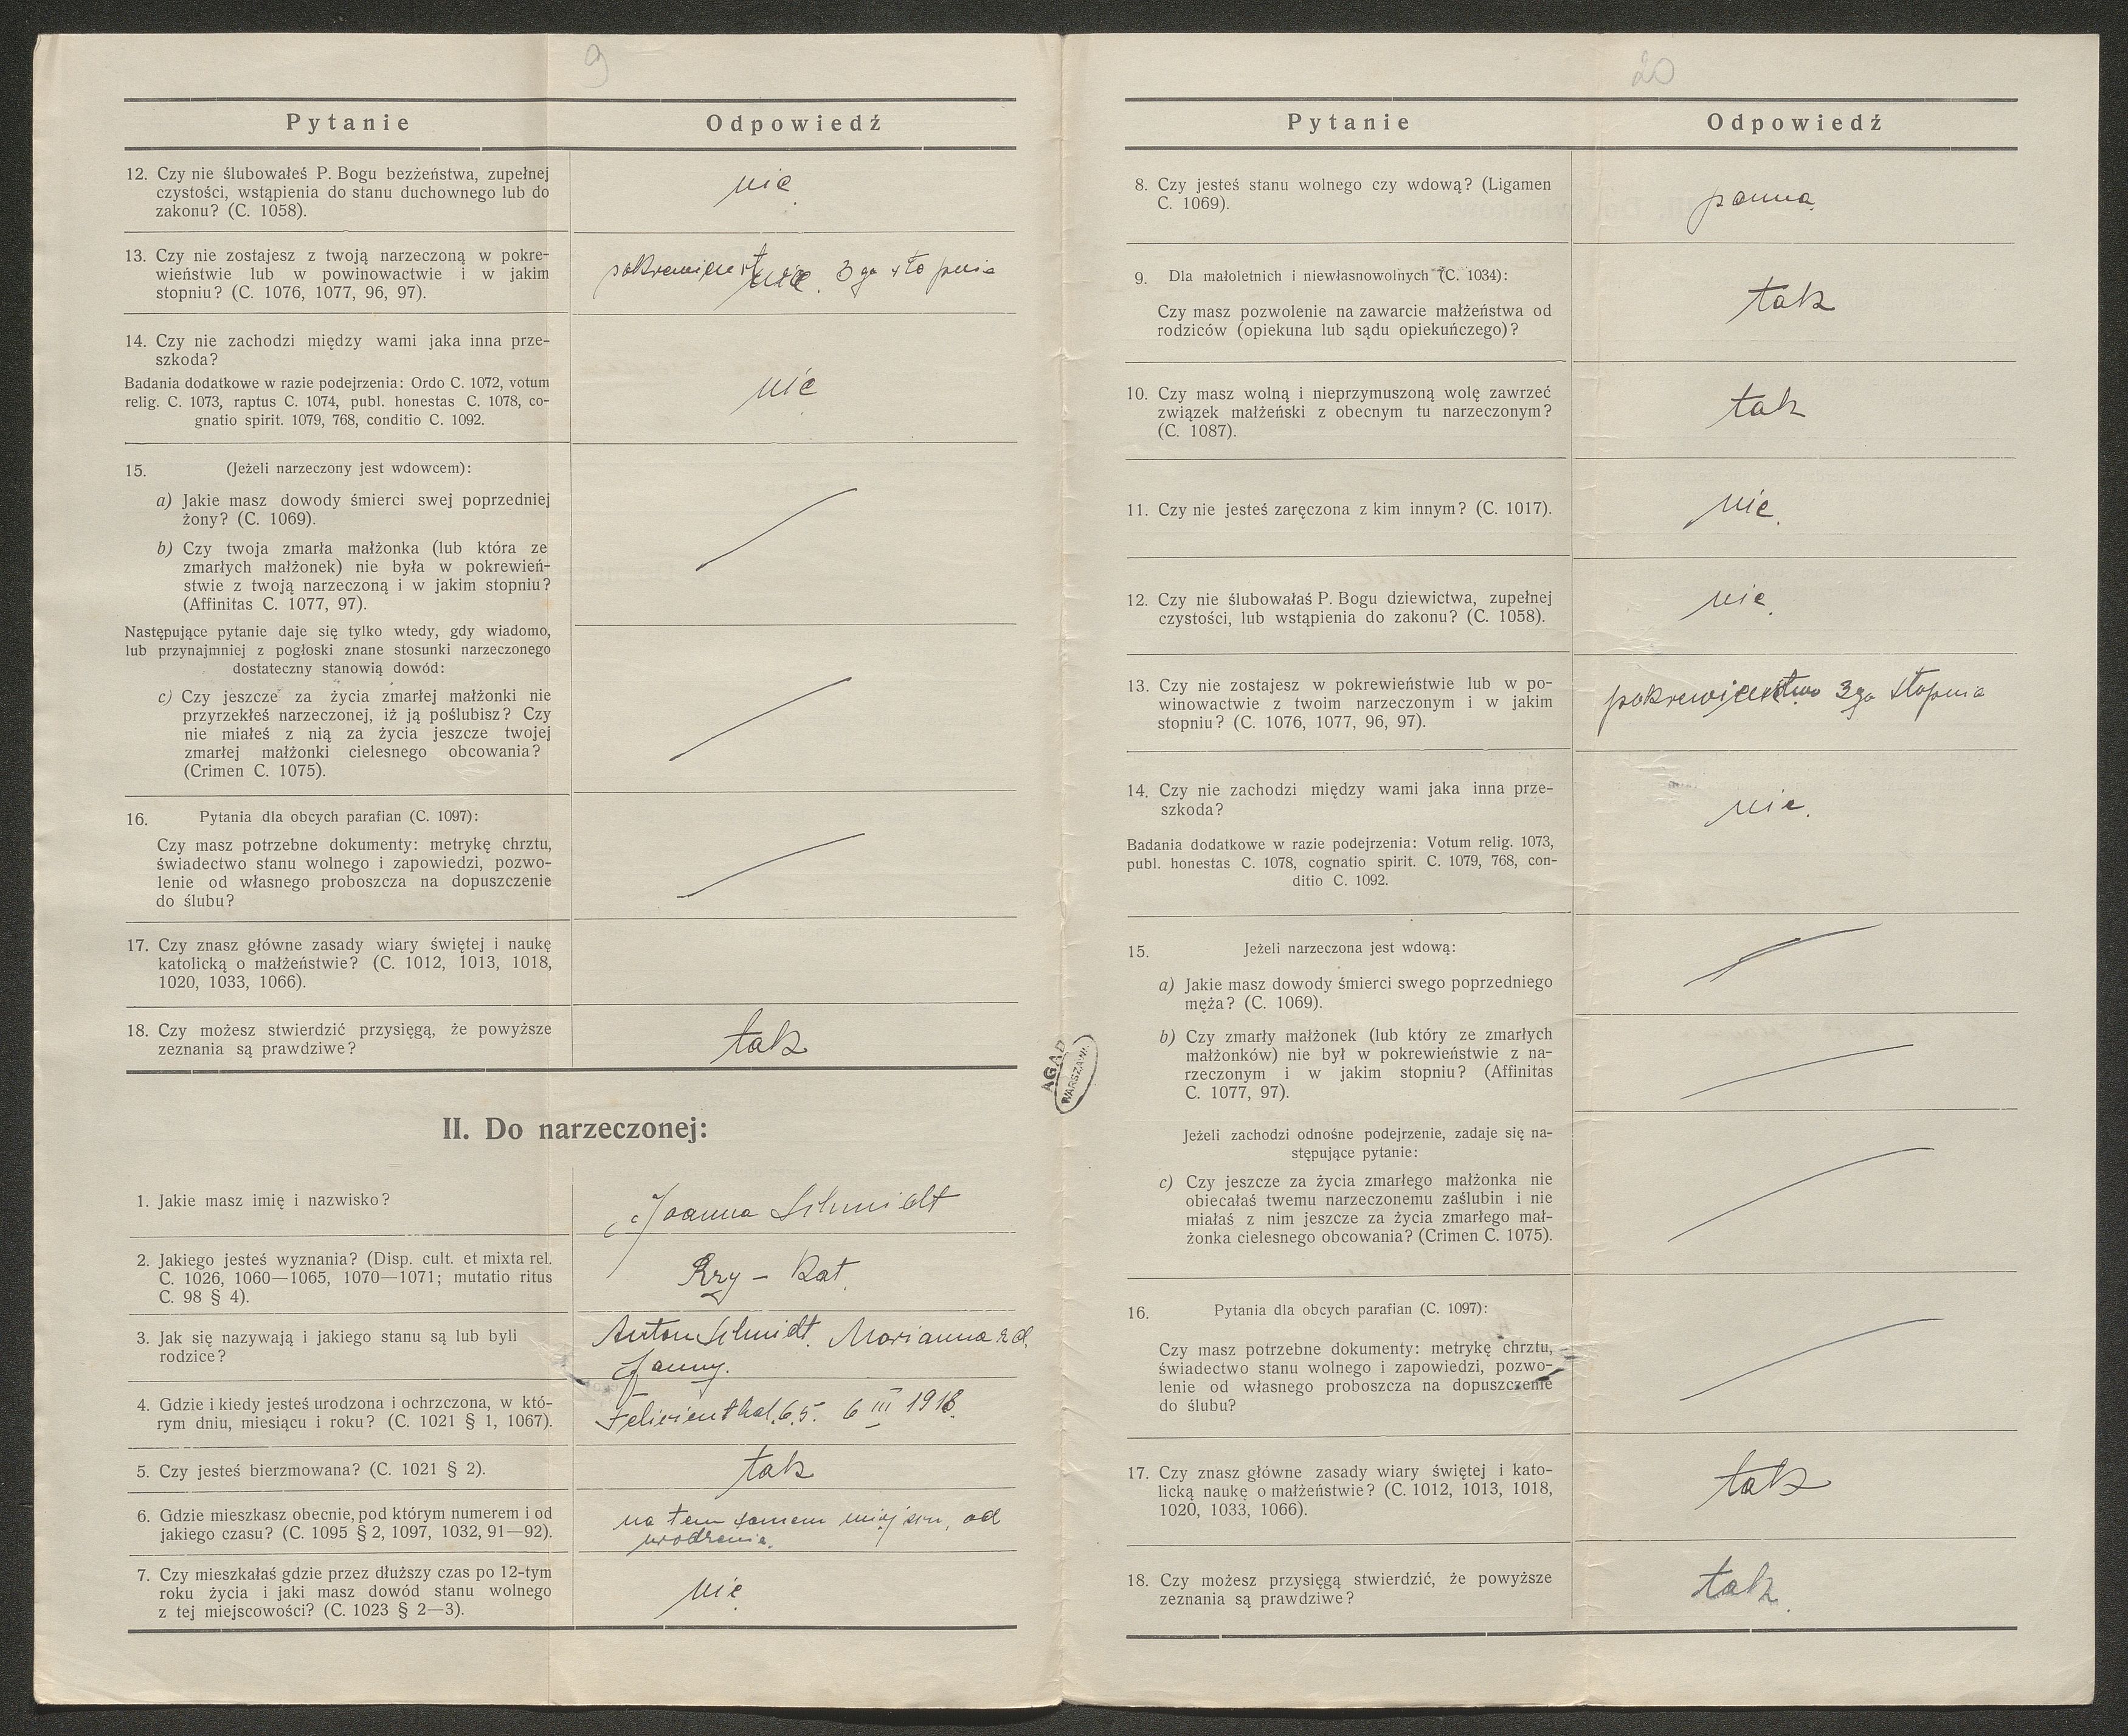 9
Pytanie
Odpowiedź
12. Czy nie ślubowałeś P. Bogu bezżeństwa, zupełnej
czystości, wstąpienia do stanu duchownego lub do
zakonu? (C. 1058).
nie.
13. Czy nie zostajesz z twoją narzeczoną w pokre-
wieństwie lub w powinowactwie i w jakim
stopniu? (C. 1076, 1077, 96, 97).
3go stopnia
14. Czy nie zachodzi między wami jaka inna prze-
szkoda?
Badania dodatkowe w razie podejrzenia: Ordo C. 1072, votum
relig. C. 1073, raptus C. 1074, publ. honestas C. 1078, co-
gnatio spirit. 1079, 768, conditio C. 1092.
nie
15. (Jeżeli narzeczony jest wdowcem):
a) Jakie masz dowody śmierci swej poprzedniej
żony? (C. 1069).
b) Czy twoja zmarła małżonka (lub która ze
zmarłych małżonek) nie była w pokrewień-
stwie z twoją narzeczoną i w jakim stopniu?
(Affinitas C. 1077, 97).
Następujące pytanie daje się tylko wtedy, gdy wiadomo,
lub przynajmniej z pogłoski znane stosunki narzeczonego
dostateczny stanowią dowód:
c) Czy jeszcze za życia zmarłej małżonki nie
przyrzekłeś narzeczonej, iż ją poślubisz? Czy
nie miałeś z nią za życia jeszcze twojej
zmarłej małżonki cielesnego obcowania?
(Crimen C. 1075).
16. Pytania dla obcych parafian (C. 1097):
Czy masz potrzebne dokumenty: metrykę chrztu,
świadectwo stanu wolnego i zapowiedzi, pozwo-
lenie od własnego proboszcza na dopuszczenie
do ślubu?
17. Czy znasz główne zasady wiary świętej i naukę
katolicką o małżeństwie? (C. 1012, 1013, 1018,
1020, 1033, 1066).
18. Czy możesz stwierdzić przysięgą, że powyższe
zeznania są prawdziwe?
tak
II. Do narzeczonej:
1. Jakie masz imię i nazwisko?
Joanna Schmidt
2. Jakiego jesteś wyznania? (Disp. cult. et mixta rel.
C. 1026, 1060—1065, 1070—1071; mutatio ritus
C. 98 § 4).
Rzy – Kat.
3. Jak się nazywają i jakiego stanu są lub byli
rodzice?
Anton Schmidt. Marianna zd.
Janny.
4. Gdzie i kiedy jesteś urodzona i ochrzczona, w któ-
rym dniu, miesiącu i roku? (C. 1021 § 1, 1067).
Felicienthal. 65. 6 III 1918.
5. Czy jesteś bierzmowana? (C. 1021 § 2).
tak
6. Gdzie mieszkasz obecnie, pod którym numerem i od
jakiego czasu? (C. 1095 § 2, 1097, 1032, 91—92).
na tem samem miejscu, od
urodzenia.
7. Czy mieszkałaś gdzie przez dłuższy czas po 12-tym
roku życia i jaki masz dowód stanu wolnego
z tej miejscowości? (C. 1023 § 2—3).
nie
AGAD
WARSZAWA
20
Pytanie
Odpowiedź
8. Czy jesteś stanu wolnego czy wdową? (Ligamen
C. 1069).
panna.
9. Dla małoletnich i niewłasnowolnych (C. 1034):
Czy masz pozwolenie na zawarcie małżeństwa od
rodziców (opiekuna lub sądu opiekuńczego)?
tak
10. Czy masz wolną i nieprzymuszoną wolę zawrzeć
związek małżeński z obecnym tu narzeczonym?
(C. 1087).
tak
11. Czy nie jesteś zaręczona z kim innym? (C. 1017).
nie.
12. Czy nie ślubowałaś P. Bogu dziewictwa, zupełnej
czystości, lub wstąpienia do zakonu? (C. 1058).
nie.
13. Czy nie zostajesz w pokrewieństwie lub w po-
winowactwie z twoim narzeczonym i w jakim
stopniu? (C. 1076, 1077, 96, 97).
pokrewieństwo 3go stopnia
14. Czy nie zachodzi między wami jaka inna prze-
szkoda?
Badania dodatkowe w razie podejrzenia: Votum relig. 1073,
publ. honestas C. 1078, cognatio spirit. C. 1079, 768, con-
ditio C. 1092.
nie.
15. Jeżeli narzeczona jest wdową:
a) Jakie masz dowody śmierci swego poprzedniego
męża? (C. 1069).
b) Czy zmarły małżonek (lub który ze zmarłych
małżonków) nie był w pokrewieństwie z na-
rzeczonym i w jakim stopniu? (Affinitas
C. 1077, 97).
Jeżeli zachodzi odnośne podejrzenie, zadaje się na-
stępujące pytanie:
c) Czy jeszcze za życia zmarłego małżonka nie
obiecałaś twemu narzeczonemu zaślubin i nie
miałaś z nim jeszcze za życia zmarłego mał-
żonka cielesnego obcowania? (Crimen C. 1075).
16. Pytania dla obcych parafian (C. 1097):
Czy masz potrzebne dokumenty: metrykę chrztu,
świadectwo stanu wolnego i zapowiedzi, pozwo-
lenie od własnego proboszcza na dopuszczenie
do ślubu?
17. Czy znasz główne zasady wiary świętej i kato-
licką naukę o małżeństwie? (C. 1012, 1013, 1018,
1020, 1033, 1066).
tak
18. Czy możesz przysięgą stwierdzić, że powyższe
zeznania są prawdziwe?
tak.